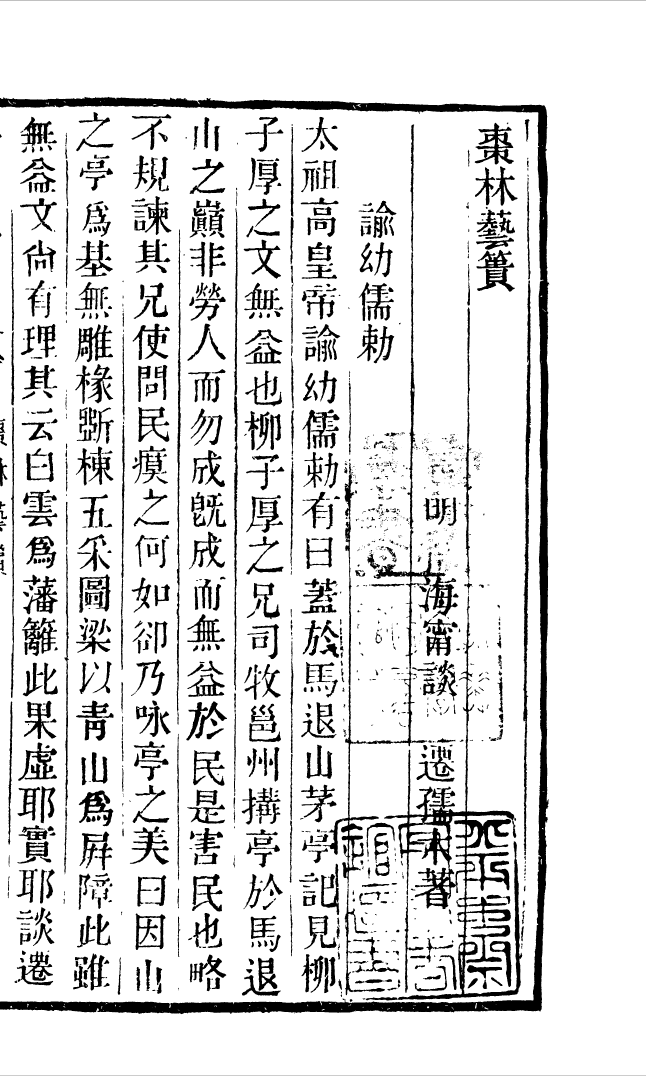 棗林藝簣
明 海甯談 遷孺木著
諭幼儒勅
太祖高皇帝諭幼儒勅有曰蓋於馬退山茅亭記見柳
子厚之文無益也柳子厚之兄司牧邕州搆亭於馬退
山之巔非勞人而勿成旣成而無益於民是害民也略
不規諫其兄使問民瘼之何如卻乃咏亭之美曰因山
之亭爲基無雕椽斲棟五采圖梁以靑山爲屛障此雖
無益文尙有理其云白雲爲藩籬此果虛耶實耶談遷